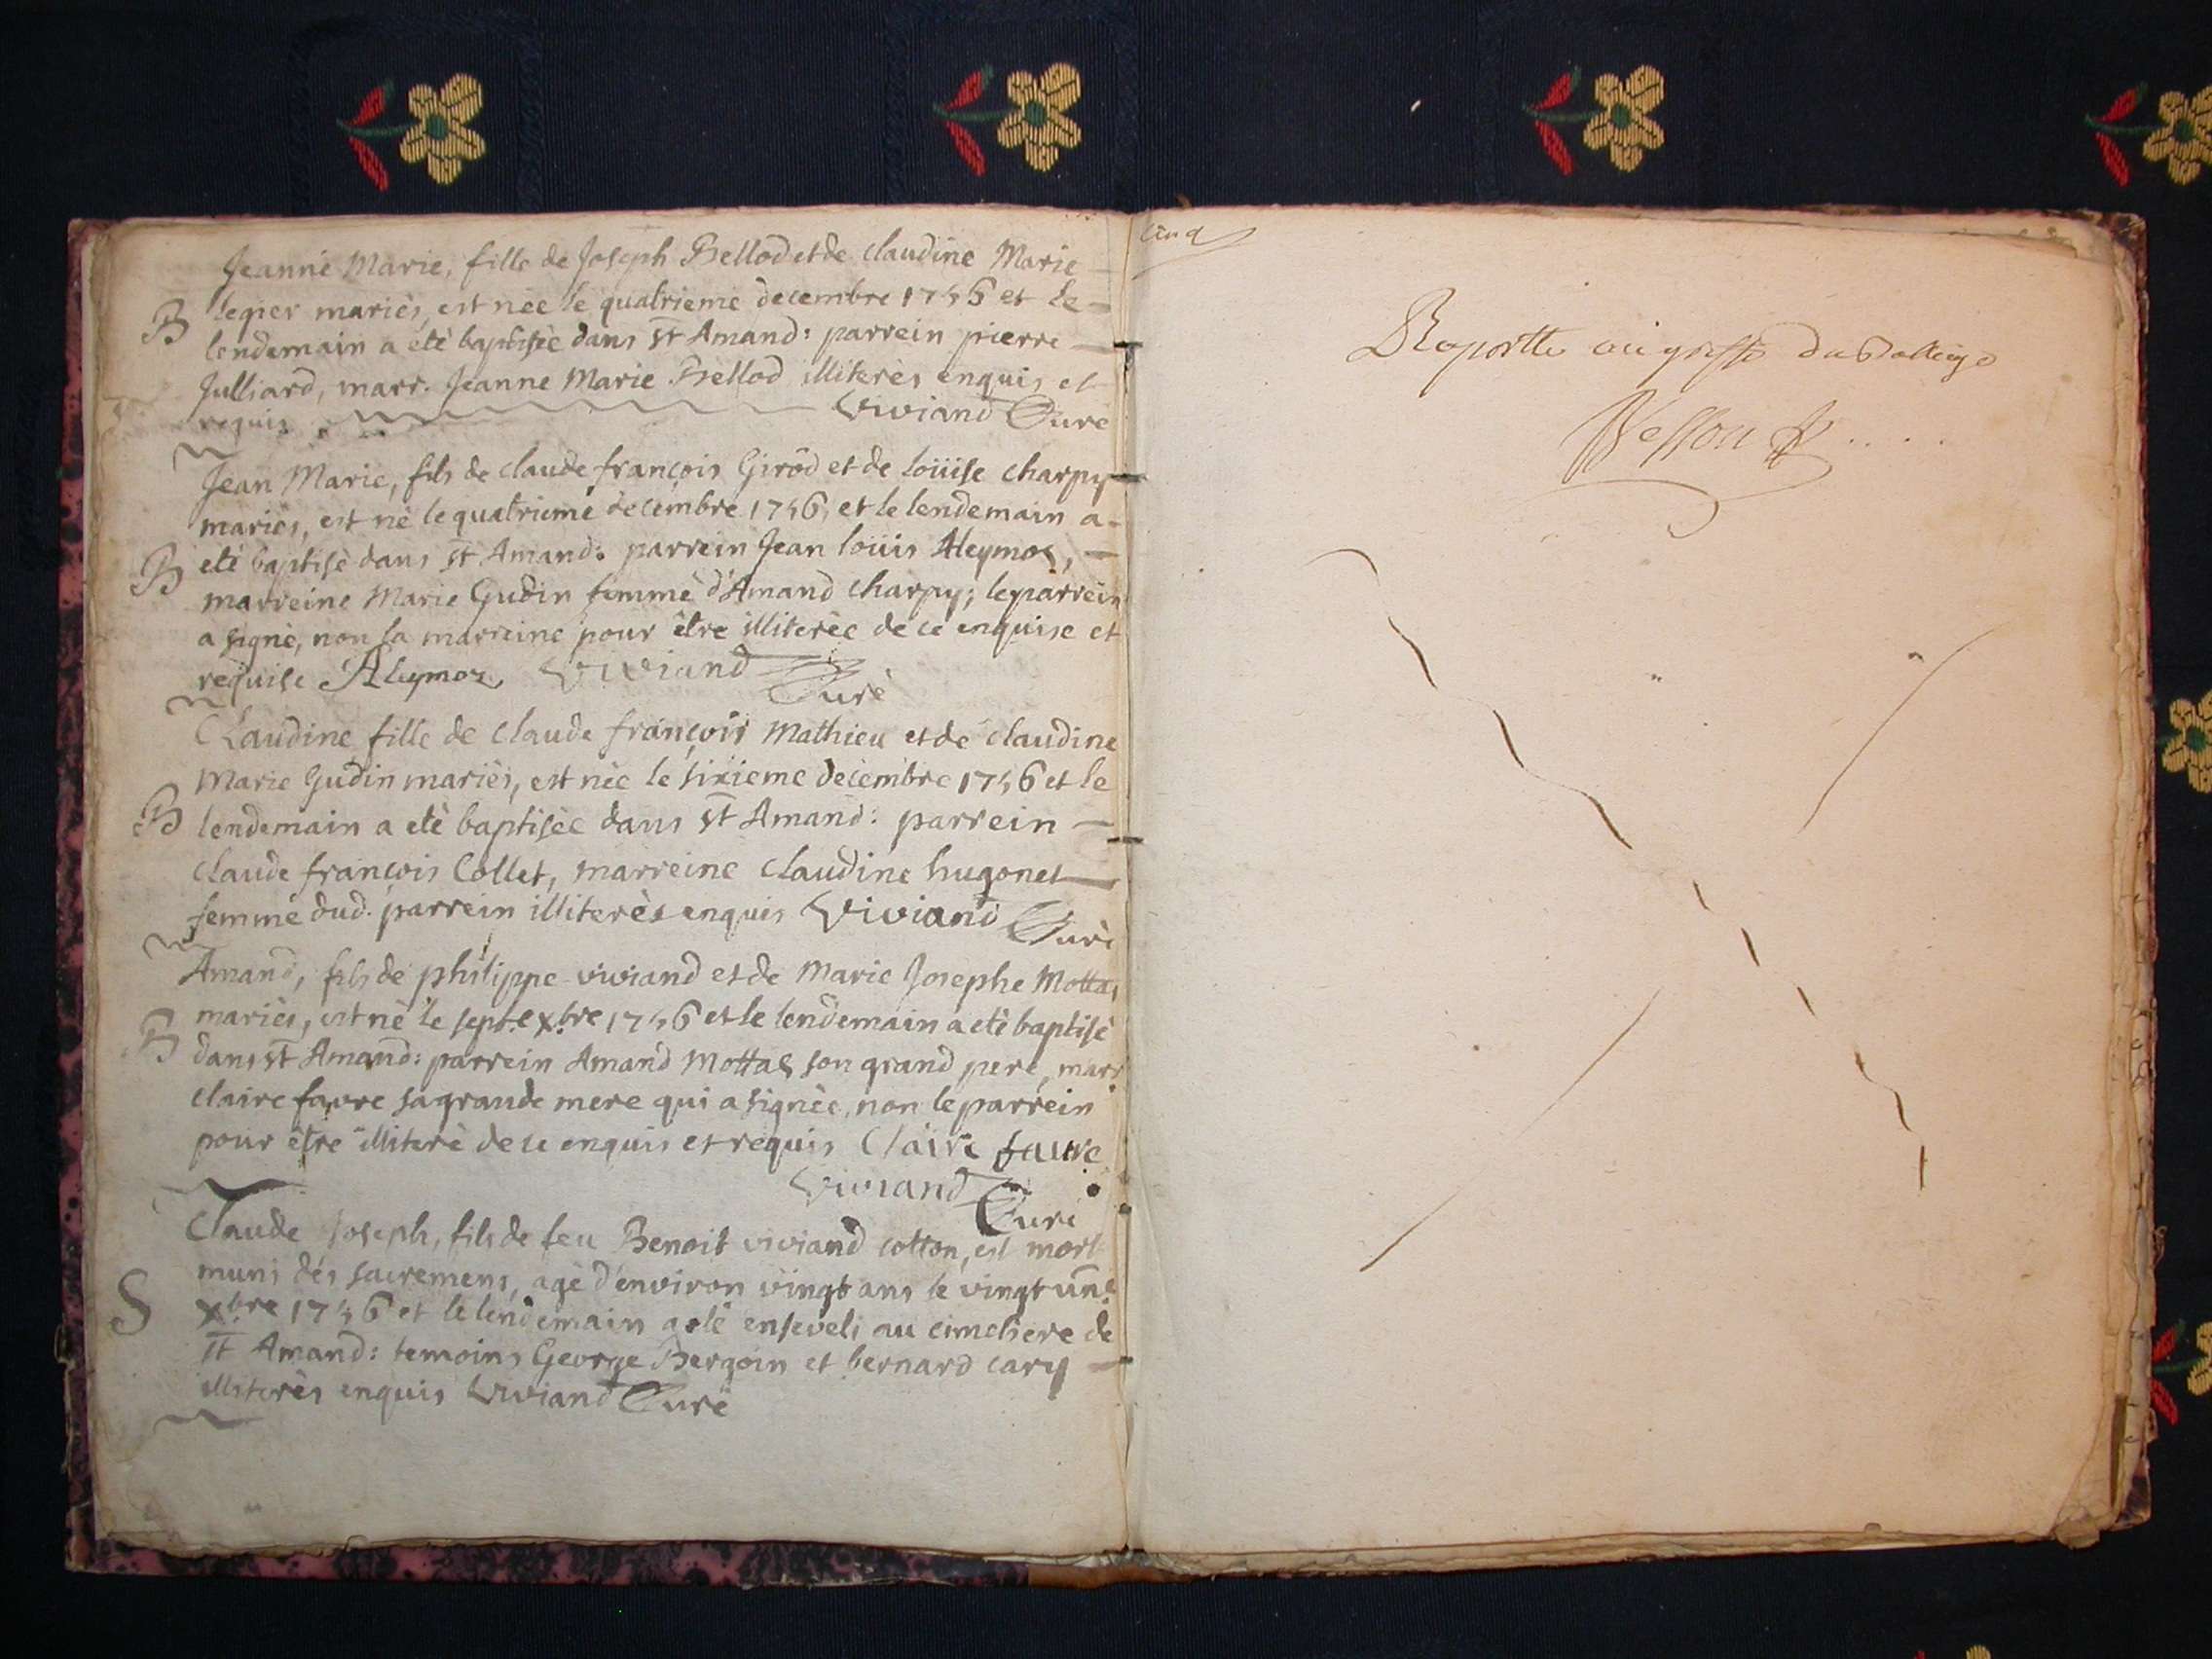 Jeanne Marie, fille de Joseph Bellod et de claudine Marie
B legier mariès, est nèe le quatrieme decembre 1746 et le
lendemain a etè baptisèe dans st Amand: parrein pierre
Julliard, marr. Jeanne Marie Bellod illiterès enquis et
requis Viviand Curè
Jean Marie, fils de claude françois Girod et de loüise charpy
mariès, est nè le quatrieme decembre 1746, et le lendemain a
B etè baptisè dans st Amand: parrein Jean loüis Aleymoz,
marreine Marie Gudin femme d'Amand charpy; le parrein
a signè, non sa marreine pour être illiterèe de ce enquise et
requise Aleymoz Viviand
Curè
Claudine fille de claude françois Mathieu et de claudine
Marie Gudin mariès, est nèe le sixieme decembre 1746 et le
B lendemain a etè baptisèe dans st Amand: parrein
claude françois Collet, marreine claudine hugonet
femme dud. parrein illiterès enquis Viviand Curè
Amand, fils de philippe viviand et de Marie Josephe Mottas
mariès, est nè le sept.e xbre 1746 et le lendemain a etè baptisè
B dans st Amand: parrein Amand Mottas son grand pere, marr
claire favre sa grande mere qui a signèe, non le parrein
pour être illiterè de ce enquis et requis Claire favre
Viviand Curè
Claude Joseph, fils de feu Benoit viviand cotton, est mort
muni des sacremens, agè d'environ vingt ans le vingt une
S xbre 1746 et le lendemain a etè enseveli au cimetiere de
st Amand: temoins George Bergoin et bernard cary
illiterès enquis Viviand Curè
cinq
Raportté au greffe du Balliage